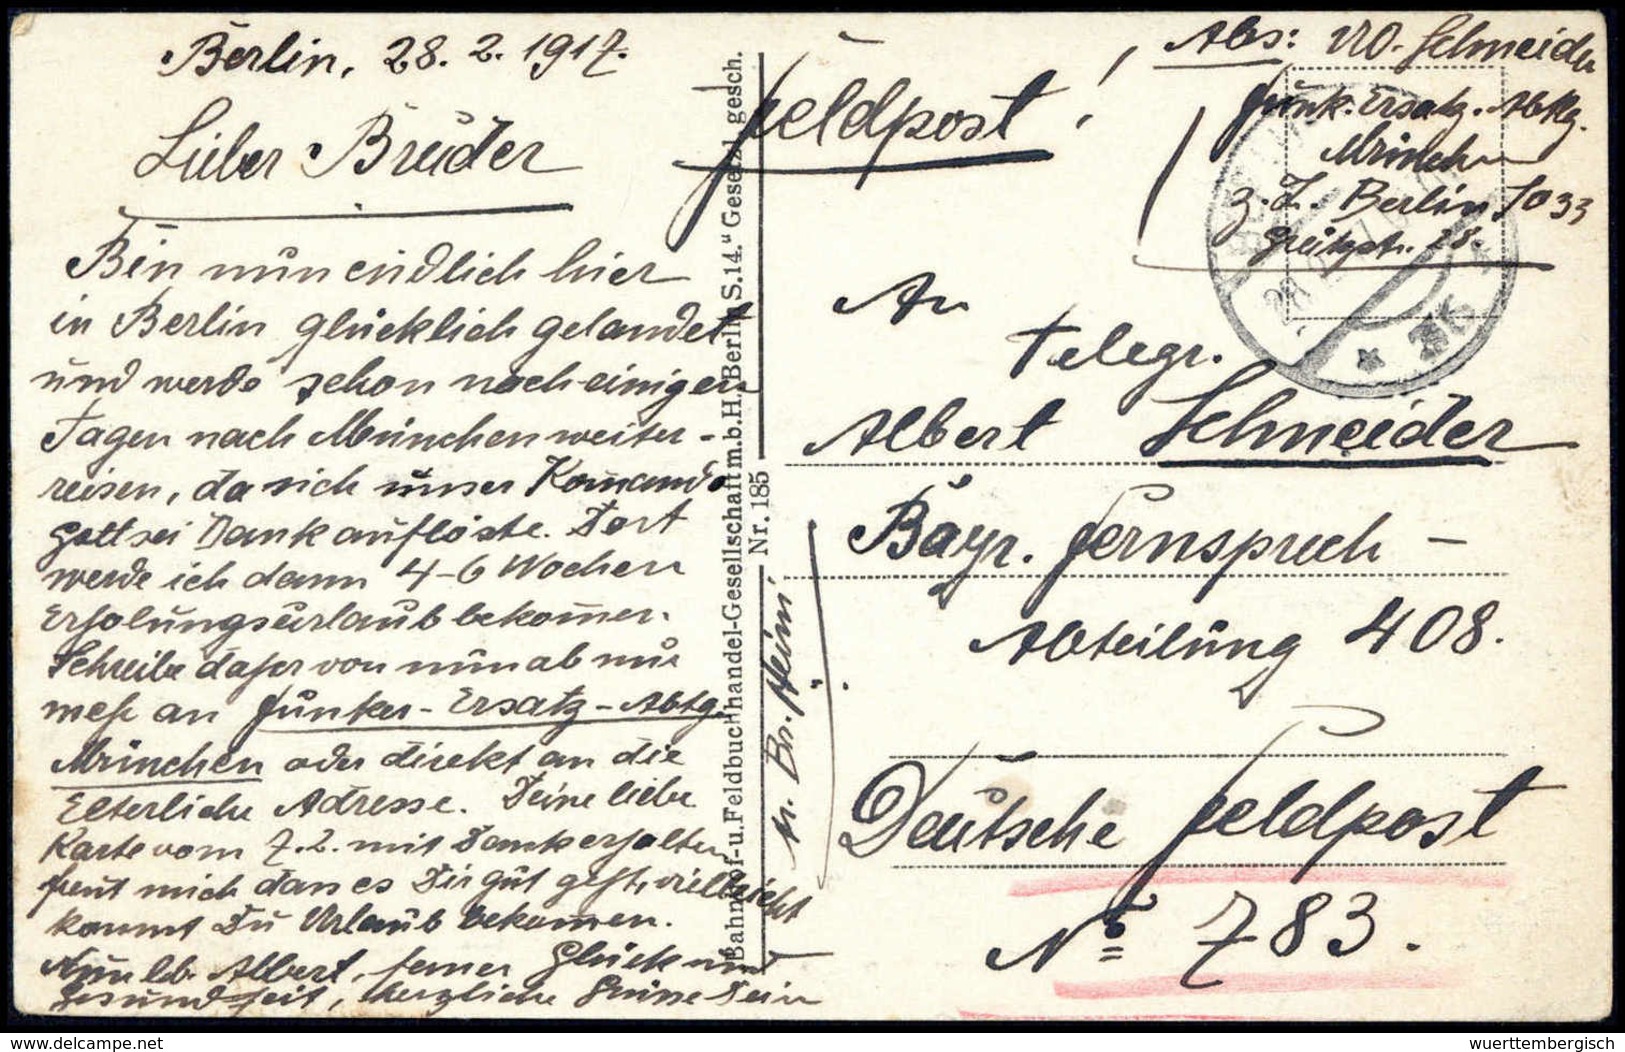 Berlin, 28. 2. 1917.
Lieber Bruder
Bin nun endlich hier
in Berlin glücklich gelandet
und werde schon nach einigen
Tagen nach München weiter-
reisen, da sich unser Kom̄ando
Gott sei Dank auflöste. Dort
werde ich dann 4-6 Wochen
Erholungsurlaub bekom̄en.
Schreibe daher von nun ab nur
mehr an Funker-Ersatz-Abtg.
München oder direkt an die
Elterliche Adresse. Deine liebe
Karte vom 7.2. mit Dank erhalten
freut mich dass es Dir gut geht, vielleicht
kommt Du Urlaub bekom̄en.
Nun lb. Albert, ferner Glück und
Gesundheit, herzliche Grüsse Dein
Br. Heini
Bahnhof-u. Feldbuchhandel-Gesellschaft m.b.H., Berlin S.14. "Gesetzl. gesch.
Nr. 185
Feldpost!
Abs: UO. Schneider
Funk. Ersatz. Abtlg.
München
z. Z. Berlin SO 33
28.
An
Telegr.
Albert Schneider
Bayr. Fernsprech-
Abteilung 408.
Deutsche Feldpost
No 783.
ansichtskarten-center.de
wuerttembergisch